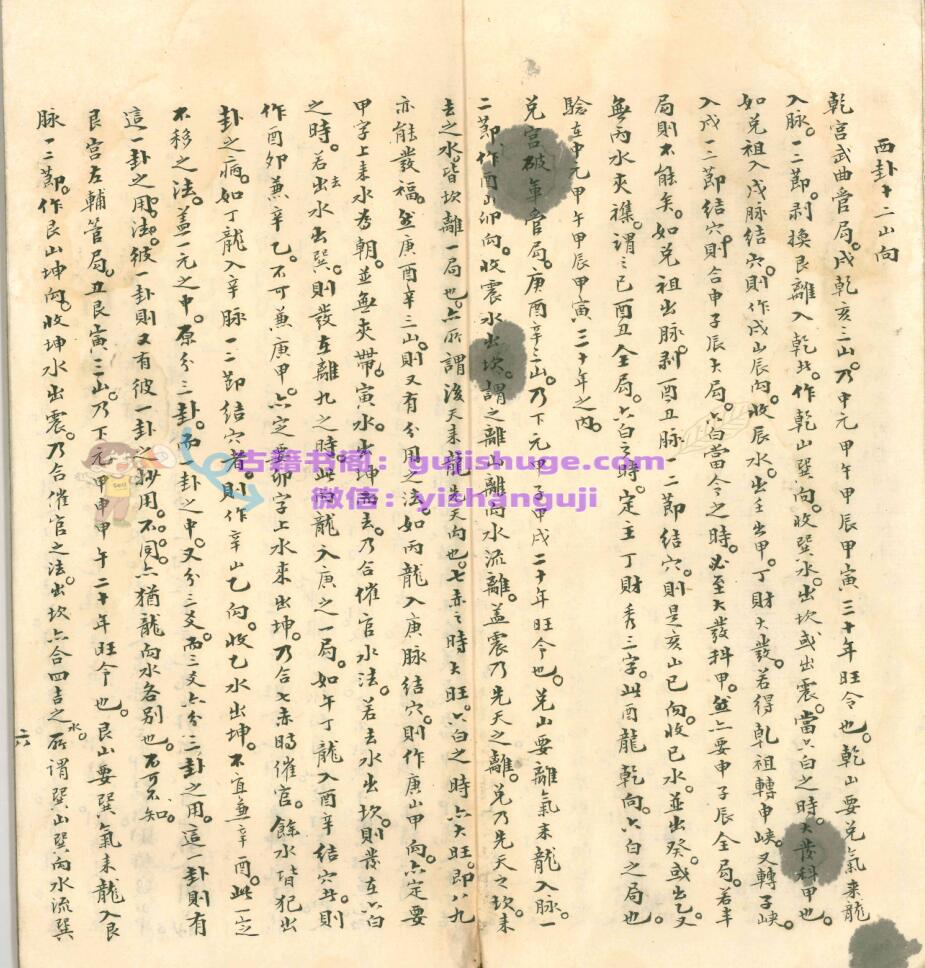 西卦十二山向
乾宮武曲管局。戌乾亥三山。乃中元甲午甲辰甲寅三十年旺令也。乾山要兌氣来龍
入脉。一二節。剥換艮離入乾北。作乾山巽向。收巽水。出坎或出震。當六白之時。大發科甲也。
如兌祖入戌脉結穴。則作戌山辰向。收辰水。出壬出甲。丁財大發。若得乹祖轉申峡。又轉子峡。
入戌一二節結穴。則合申子辰大局。六白當令之時。必至大發科甲。然亦要申子辰全局。若半
局則不能矣。如兌祖出脉。剥酉丑脉一二節結穴。則是亥山巳向。收巳水。並出癸。或出乙又
無丙水夾襍。謂之巳酉丑全局。六白之時。定主丁財秀三字。此酉龍乾向。六白之局也
騐在中元甲午甲辰甲寅三十年之內。
兌宮破軍管局。庚酉辛三山。乃下元甲子甲戌二十年旺令也。兌山要離氣来龍入脉。一
二節。作酉山卯向。收震水出坎。謂之離山離向水流離。蓋震乃先天之離。兌乃先天之坎。来
去之水。皆坎離一局也。亦所謂後天来龍先天向也。七赤之時大旺。六白之時亦大旺。即八九
亦能發福。然庚酉辛三山。則又有分用之法。如丙龍入庚脉結穴。則作庚山甲向。亦定要
甲字上来水为朝。並無夾帶。寅水。出坤而去。乃合催官水法。若去水出坎。則發在六白
之時。若出去水出巽。則發在離九之時。此丙龍入庚之一局。如午丁龍入酉辛結穴者。則
作酉卯兼辛乙。不可兼庚甲。亦定要卯字上水来出坤。乃合七赤時催官。餘水皆犯出
卦之病。如丁龍入辛脉一二節結穴者。則作辛山乙向。收乙水出坤。不宜兼辛酉。此一定
不移之法。蓋一元之中。原分三卦。而一卦之中。又分三爻。而三爻亦分三卦之用。這一卦則有
這一卦之用法。彼一卦則又有彼一卦之抄用。不同。亦猶龍向水各别也。不可不知。
艮宮左輔管局。丑艮寅三山。乃下元甲申甲午二十年旺令也。艮山要巽氣来龍入艮
脉一二節。作艮山坤向。收坤水出震。乃合催官之法。出坎亦合四吉之水。所謂巽山巽向水流巽
六
古籍书阁：gujishuge.com
微信：yishanguji